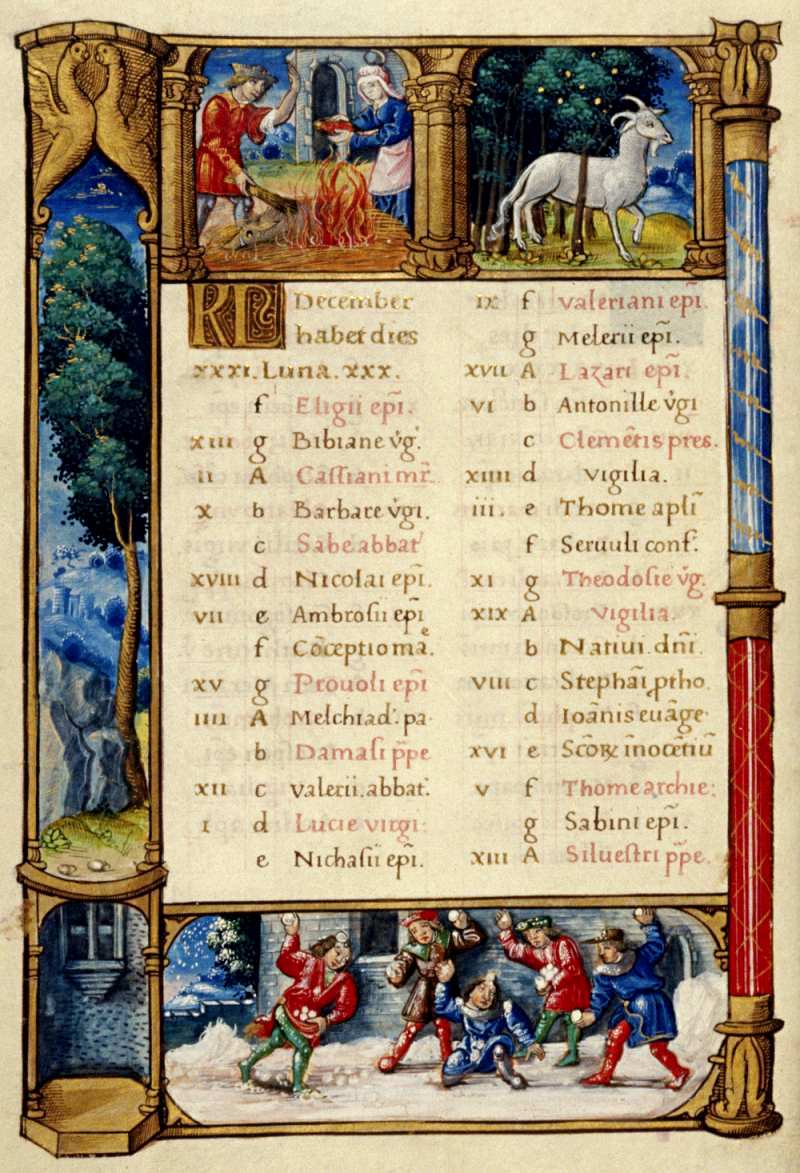 KL December
habet dies
xxxi. Luna. xxx.
f Eligii ep̄i.
xiii g Bibiane v̓g̓.
ii A Cassiani mr̄.
x b Barbare v̓gi.
c Sabe abbat̓
xviii d Nicolai ep̄i.
vii e Ambrosii ep̄i
f Cōceptio maͤ.
xv g Prouoli ep̄i
iiii A Melchiad̓. pa
b Damasi pp̄e
xii c valerii. abbat̓.
i d Lucie virgi:
e Nichasii ep̄i.
ix f valeriani ep̄i.
g Melerii ep̄i.
xvii A Lazari ep̄i.
vi b Antonille v̓gi
c Clemētis pres.
xiiii d vigilia.
iii. e Thome apl̄i
f Seruuli conf̓.
xi g Theodosie v̓g.
xix A Vigilia.
b Natiui. dn̄i.
viii c Stephāi ꝓtho.
d Ioānis euāge
xvi e Sc̄oꝝ īnocētiū
v f Thome archie:
g Sabini ep̄i.
xiii A Siluestri pp̄e.